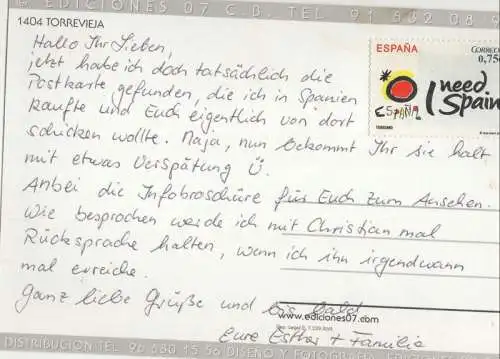 EDICIONES 07 C.B. TEL. 91 532 08
1404 TORREVIEJA
Hallo Ihr Lieben,
jetzt habe ich doch tatsächlich die
Postkarte gefunden, die ich in Spanien
kaufte und Euch eigentlich von dort
schicken wollte. Naja, nun bekommt Ihr sie halt
mit etwas Verspätung Ü.
Anbei die Infobroschüre für Euch zum Ansehen.
Wie besprochen werde ich mit Christian mal
Rücksprache halten, wenn ich ihn irgendwann
mal erreiche.
Ganz liebe Grüße und bis bald
Eure Esther + Familie
ESPAÑA
CORREO
0,75
I need
Spain
ESPAÑA
TURISMO
www.ediciones07.com
DISTRIBUCION TEL. 96 680 15 56 DISEÑO Y FOTOGRAF